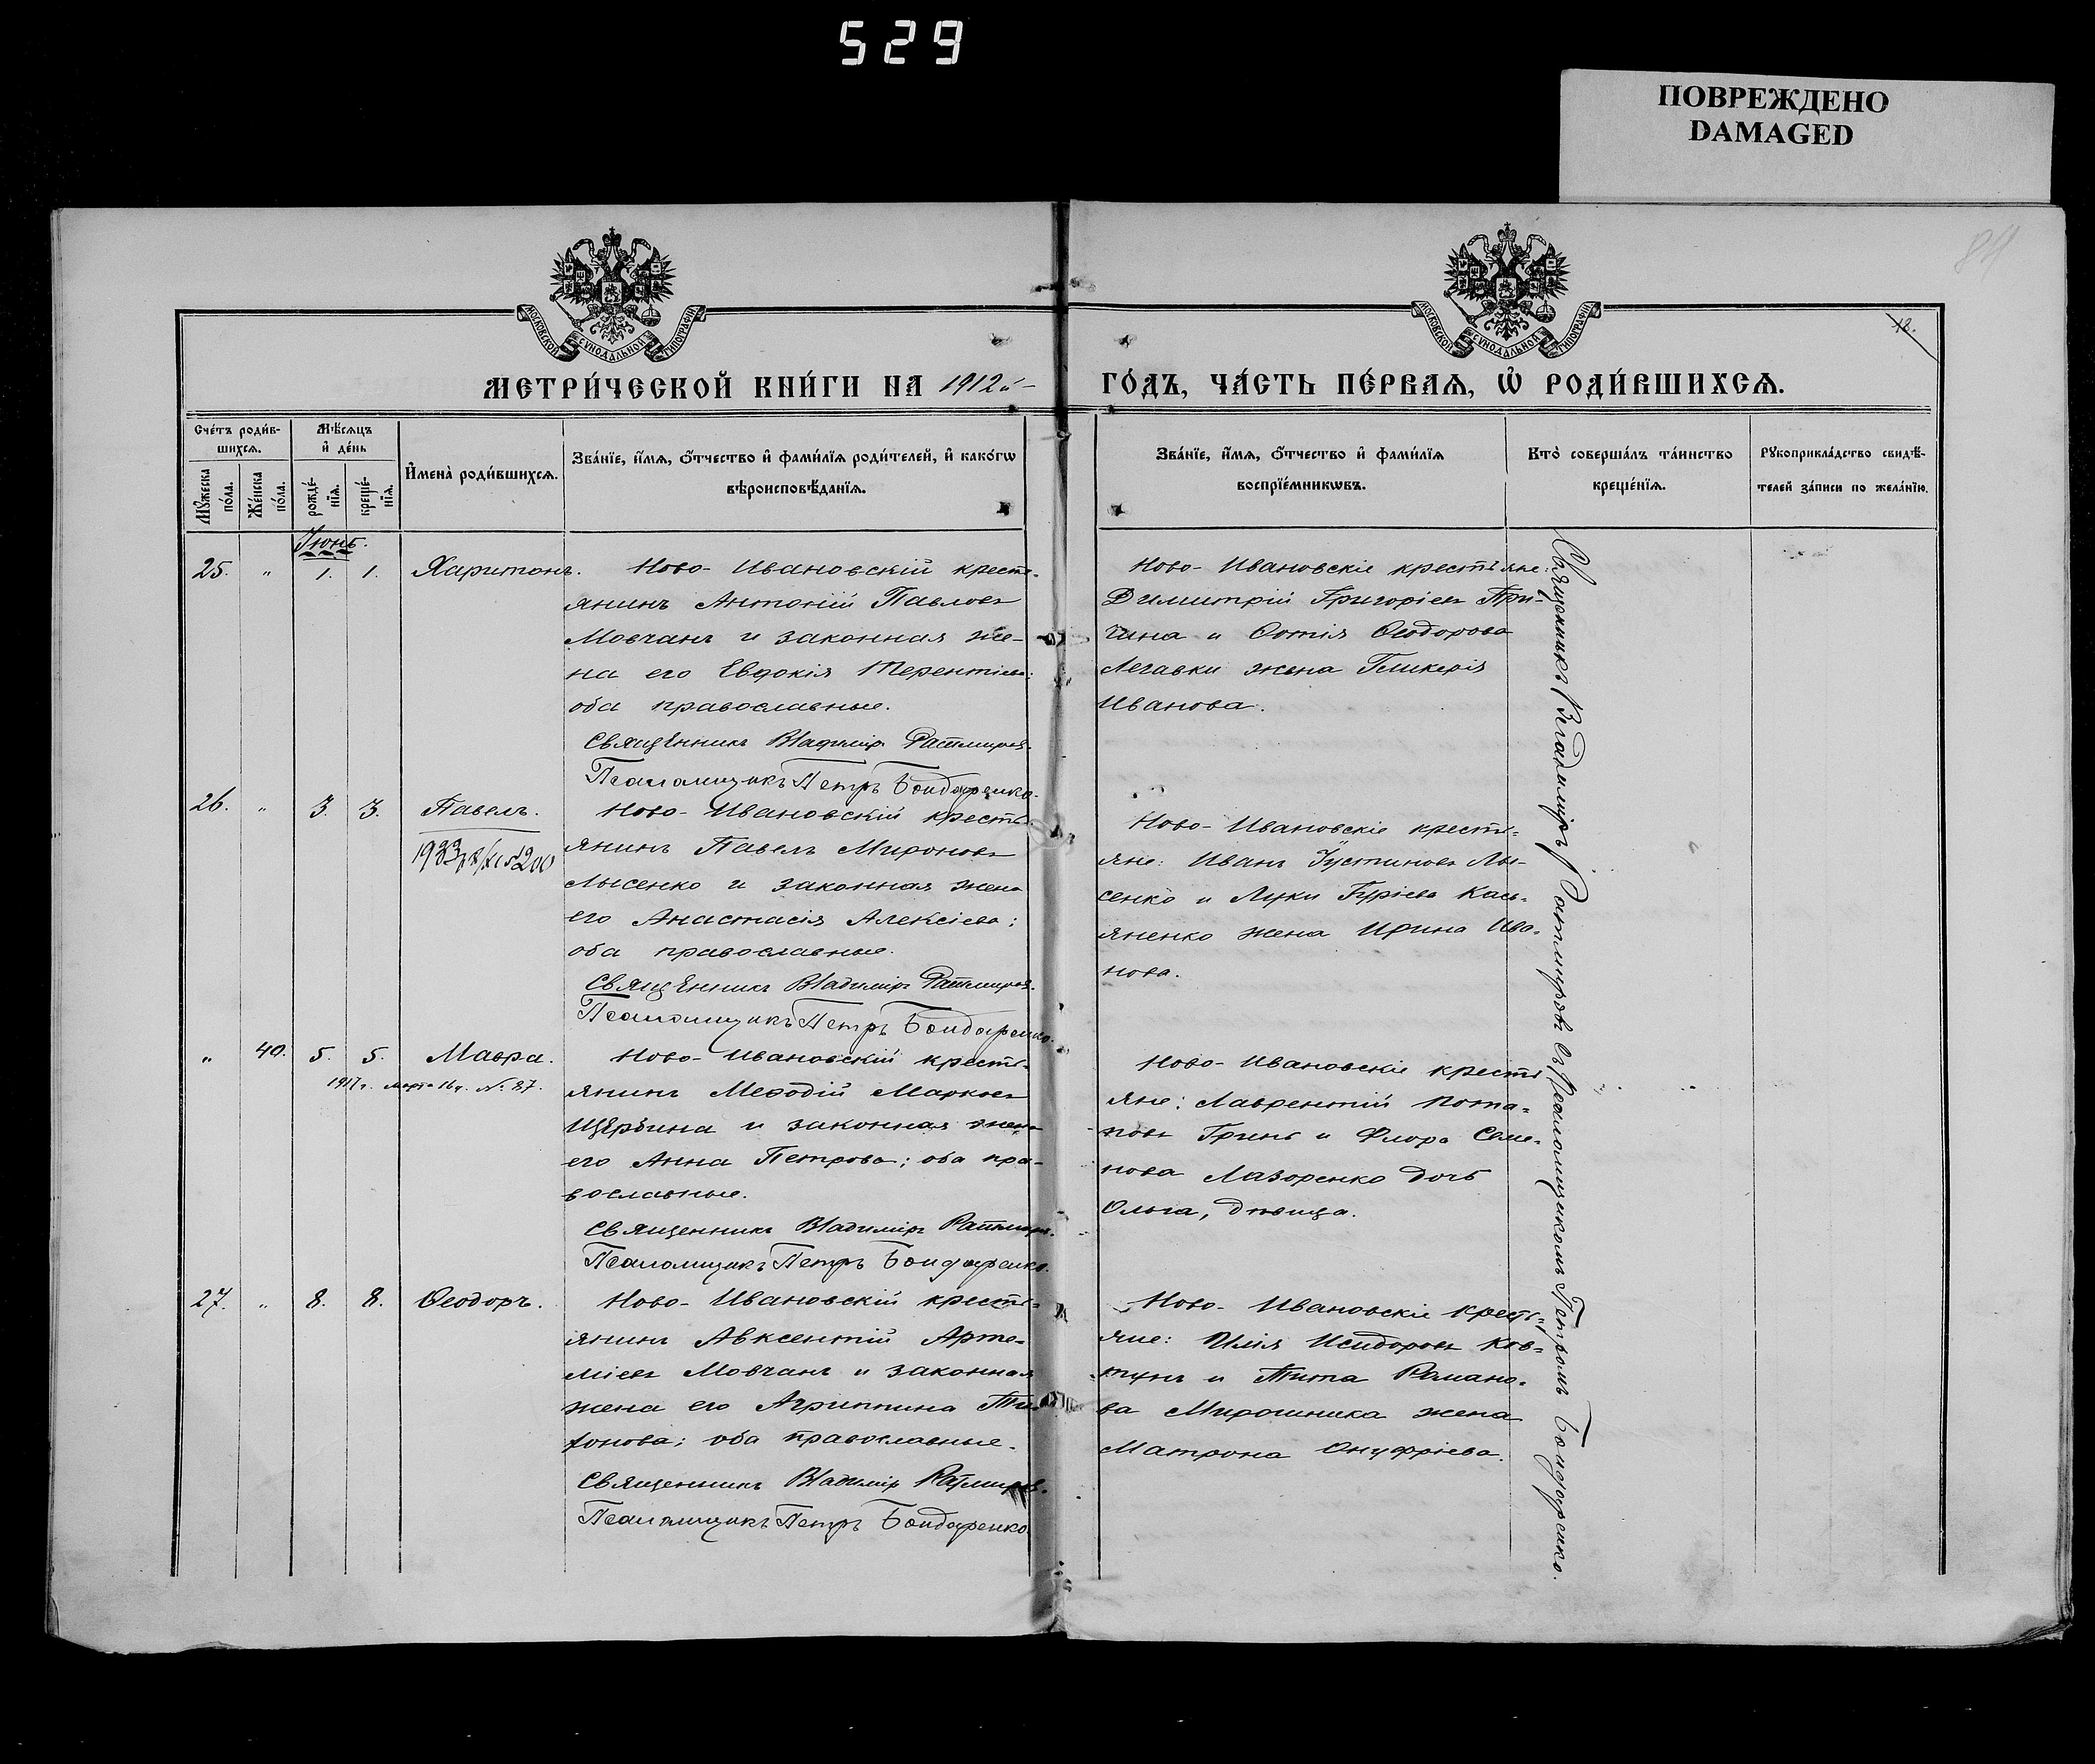 529
ПОВРЕЖДЕНО
DAMAGED
МОСКОВСКОЙ СѴНОДАЛЬНОЙ ТИПОГРАФІИ
МОСКОВСКОЙ СѴНОДАЛЬНОЙ ТИПОГРАФІИ
84
12.
МЕТРИ́ЧЕСКОЙ КНИ́ГИ НА 1912й
ГО́ДЪ, ЧА́СТЬ ПЕ́РВАѦ, Ѡ҆ РОДИ́ВШИХСѦ.
Сче́тъ роди́в-
шихсѧ.
Мꙋ́жеска по́ла.
Же́нска по́ла.
Мѣ́сѧцъ
и҆ де́нь
рожде́-нїѧ.
креще́-нїѧ.
И҆мена̀ роди́вшихсѧ.
Зва́нїе, и҆́мѧ, ѻ҆́тчество и҆ фами́лїѧ роди́телей, и҆ како́гѡ
вѣроисповѣ́данїѧ.
Зва́нїе, и҆́мѧ, ѻ҆́тчество и҆ фами́лїѧ
воспрїе́мникѡвъ.
Кто̀ соверша́лъ та́инство
креще́нїѧ.
Рꙋкоприкла́дство свидѣ́-
телей за́писи по жела́нїю.
Іюнь.
25. " 1. 1. Харитонъ.
Ново-Ивановскій кресть-
янинъ Антоній Павловъ
Мовчанъ и законная же-
на его Евдокія Терентіева;
оба православные.
Священникъ Владиміръ Ратмировъ.
Псаломщикъ Петръ Бондаренко.
Ново-Ивановскіе крестьяне:
Димитрій Григоріевъ При-
чина и Ѳотія Ѳеодорова
Легавки жена Гликерія
Иванова.
26. " 3. 3. Павелъ.
1933
Ново-Ивановскій кресть-
янинъ Павелъ Мироновъ
Лысенко и законная жена
его Анастасія Алексіева;
оба православные.
Священникъ Владиміръ Ратмировъ.
Псаломщикъ Петръ Бондаренко.
Ново-Ивановскіе кресть-
яне: Иванъ Іустиновъ Лы-
сенко и Луки Гуріева Кась-
яненко жена Ирина Ива-
нова.
" 40. 5. 5. Мавра.
1917 г. марта 16 д. № 87.
Ново-Ивановскій кресть-
янинъ Меѳодій Марковъ
Щербина и законная жена
его Анна Петрова; оба пра-
вославные.
Священникъ Владиміръ Ратмировъ.
Псаломщикъ Петръ Бондаренко.
Ново-Ивановскіе кресть
яне: Лаврентій Пота-
повъ Гринь и Флора Семе-
нова Лазоренко дочь
Ольга, дѣвица.
27. " 8. 8. Ѳеодоръ.
Ново-Ивановскій кресть-
янинъ Авксентій Арте-
міевъ Мовчанъ и законная
жена его Агриппина Ти-
хонова; оба православные.
Священникъ Владиміръ Ратмировъ.
Псаломщикъ Петръ Бондаренко.
Ново-Ивановскіе кресть-
яне: Илія Исидоровъ Ков-
тунъ и Тита Романо-
ва Мирошника жена
Матрона Онуфріева.
Священникъ Владиміръ Ратмировъ съ Псаломщикомъ Петромъ Бондаренко.